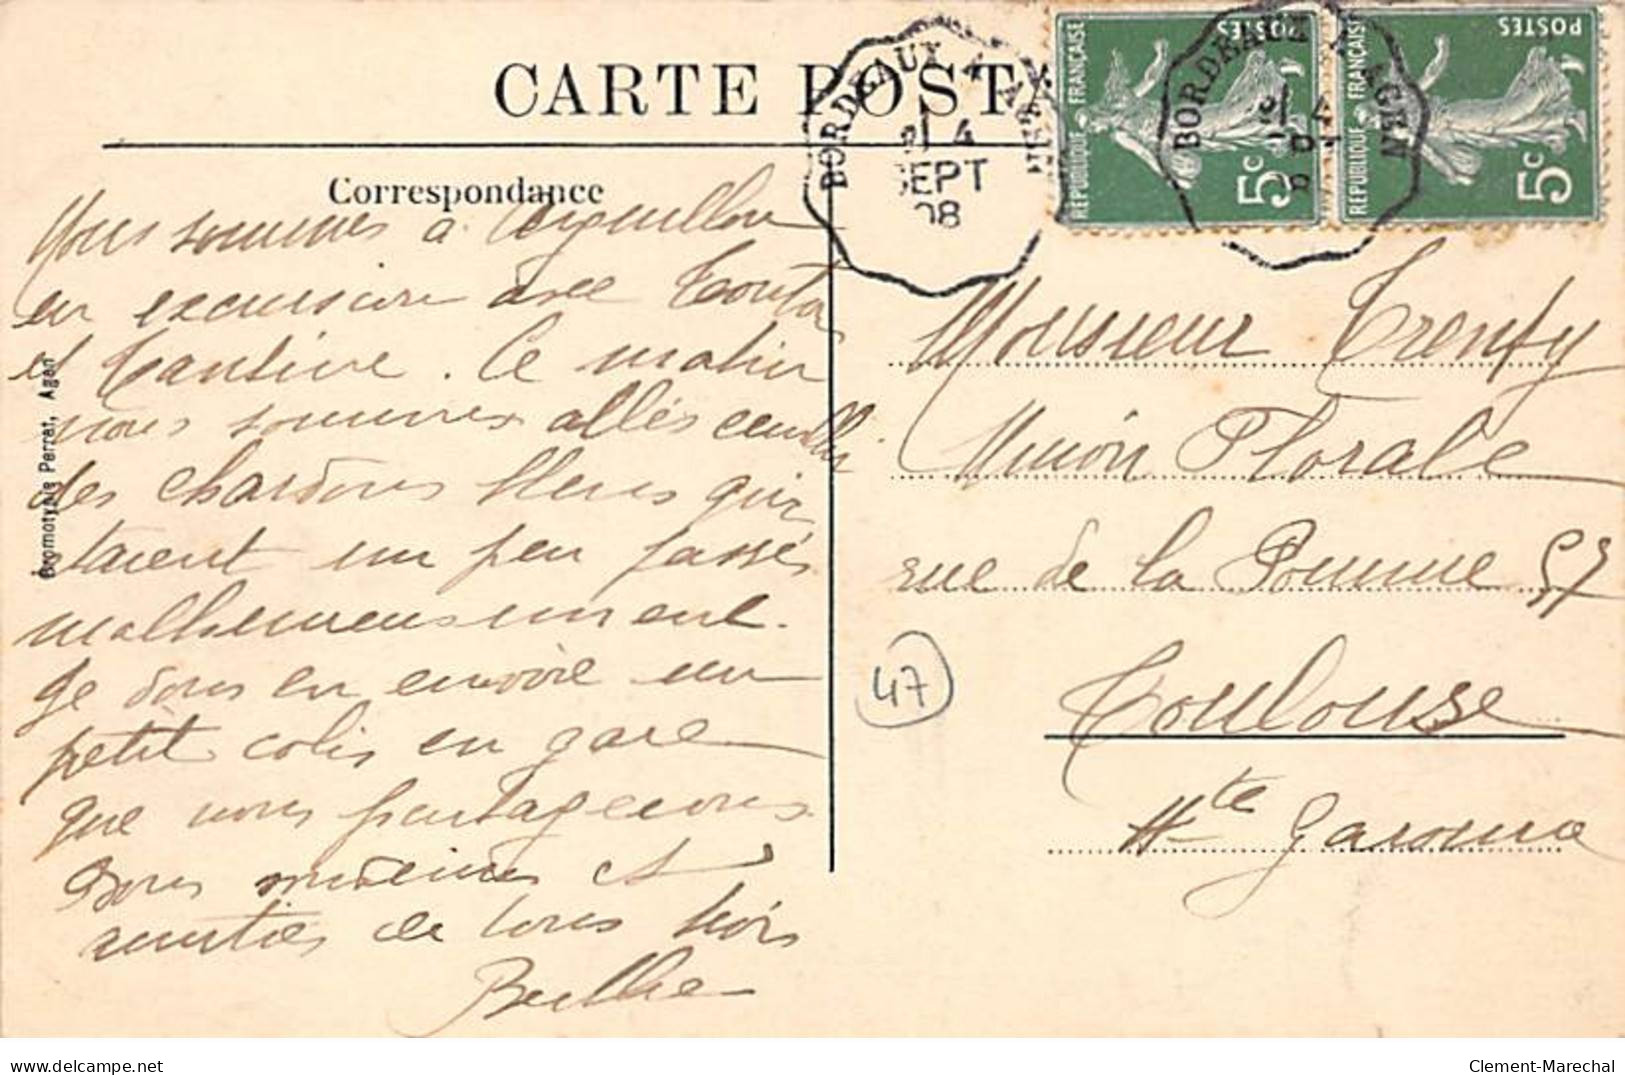 CARTE POSTA
Correspondance
BORDEAUX A AGEN
4
SEPT
08
BORDEAUX A AGEN
4
REPUBLIQUE FRANÇAISE
POSTES
5c
REPUBLIQUE FRANÇAISE
POSTES
5c
Nous sommes à Aiguillon
en excursion avec
et . Ce matin
nous sommes allés cueillir
des chardons bleus qui
étaient un peu passés
malheureusement.
Je vous en envoie un
petit colis en gare
que vous partagerez
Bons et
amitiés de tous trois
Berthe
Bromotypie Perret, Agen
Monsieur Trenty
Union Florale
rue de la Pomme 57
Toulouse
Hte Garonne
47
delcampe.net
Clement-Marechal